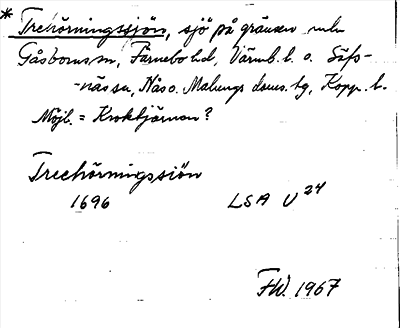 * Trehörningssjön, sjö på gränsen mln
Gåsborns sn, Färnebo hd, Värml. l. o. Säfs-
-näs sn, Nås o. Malungs doms. tg, Kopp. l.
Möjl. = Kroktjärnan?
Treehörningssiön
1696 LSA U 24
FW. 1967